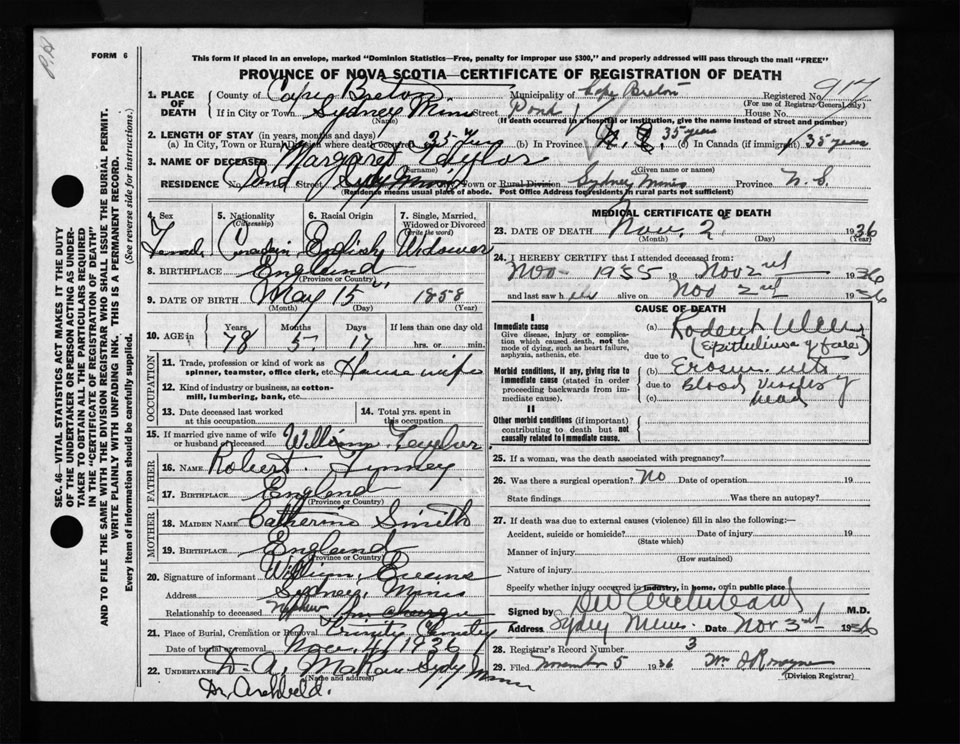 FORM 6
This form if placed in an envelope, marked "Dominion Statistics—Free, penalty for improper use $300," and properly addressed will pass through the mail "FREE"
PROVINCE OF NOVA SCOTIA—CERTIFICATE OF REGISTRATION OF DEATH
SEC. 46—VITAL STATISTICS ACT MAKES IT THE DUTY
OF THE UNDERTAKER OR PERSON ACTING AS UNDER-
TAKER TO OBTAIN ALL THE PARTICULARS REQUIRED
IN THE "CERTIFICATE OF REGISTRATION OF DEATH"
AND TO FILE THE SAME WITH THE DIVISION REGISTRAR WHO SHALL ISSUE THE BURIAL PERMIT.
WRITE PLAINLY WITH UNFADING INK. THIS IS A PERMANENT RECORD.
Every item of information should be carefully supplied. (See reverse side for instructions.)
1. PLACE OF DEATH County of Cape Breton Municipality of Cape Breton Registered No. 917
(For use of Registrar General only)
If in City or Town Sydney Mines Street Pond House No.
(Name) (If death occurred in a hospital or institution, give the name instead of street and number)
2. LENGTH OF STAY (in years, months and days)
(a) In City, Town or Rural Division where death occurred 35 yrs (b) In Province N. S. 35 years (c) In Canada (if immigrant) 35 years
3. NAME OF DECEASED Margaret Taylor
(Surname) (Given name or names)
RESIDENCE No. Pond Street Sydney Mines Town or Rural Division Sydney Mines Province N. S.
(Residence means usual place of abode. Post Office Address for residents in rural parts not sufficient)
4. Sex 5. Nationality (Citizenship) 6. Racial Origin 7. Single, Married, Widowed or Divorced (Write the word)
Canadian English
8. BIRTHPLACE England
(Province or Country)
9. DATE OF BIRTH May 15 1858
(Month) (Day) (Year)
10. AGE in Years Months Days If less than one day old
78 5 17 hrs. or min.
OCCUPATION
11. Trade, profession or kind of work as spinner, teamster, office clerk, etc. Housewife
12. Kind of industry or business, as cotton-mill, lumbering, bank, etc.
13. Date deceased last worked at this occupation 14. Total yrs. spent in this occupation
15. If married give name of wife or husband of deceased William Taylor
FATHER
16. NAME Robert
17. BIRTHPLACE England
(Province or Country)
MOTHER
18. MAIDEN NAME Catherine Smith
19. BIRTHPLACE England
(Province or Country)
20. Signature of informant William
Address Sydney Mines
Relationship to deceased Nephew
21. Place of Burial, Cremation or Removal Trinity Cemetery
Date of burial or removal Nov. 4 1936
22. UNDERTAKER D. A. Sydney Mines
(Name and address)
Dr. Archibald.
MEDICAL CERTIFICATE OF DEATH
23. DATE OF DEATH Nov. 2 1936
(Month) (Day) (Year)
24. I HEREBY CERTIFY that I attended deceased from:
Nov 1935 19 Nov 2nd 1936
and last saw h er alive on Nov 2nd 1936
CAUSE OF DEATH
I
Immediate cause
Give disease, injury or complication which caused death, not the mode of dying, such as heart failure, asphyxia, asthenia, etc.
(a) Rodent Ulcer
(Epithelioma of face)
due to
Morbid conditions, if any, giving rise to immediate cause (stated in order proceeding backwards from immediate cause).
(b) Erosion into
due to Blood Vessels of
(c) head
II
Other morbid conditions (if important) contributing to death but not causally related to immediate cause.
25. If a woman, was the death associated with pregnancy?
26. Was there a surgical operation? No Date of operation 19
State findings Was there an autopsy?
27. If death was due to external causes (violence) fill in also the following:—
Accident, suicide or homicide? Date of injury 19
(State which)
Manner of injury
(How sustained)
Nature of injury
Specify whether injury occurred in industry, in home, or in public place
Signed by M.D.
Address Sydney Mines Date Nov 3rd 1936
28. Registrar's Record Number 3
29. Filed November 5 1936
(Division Registrar)